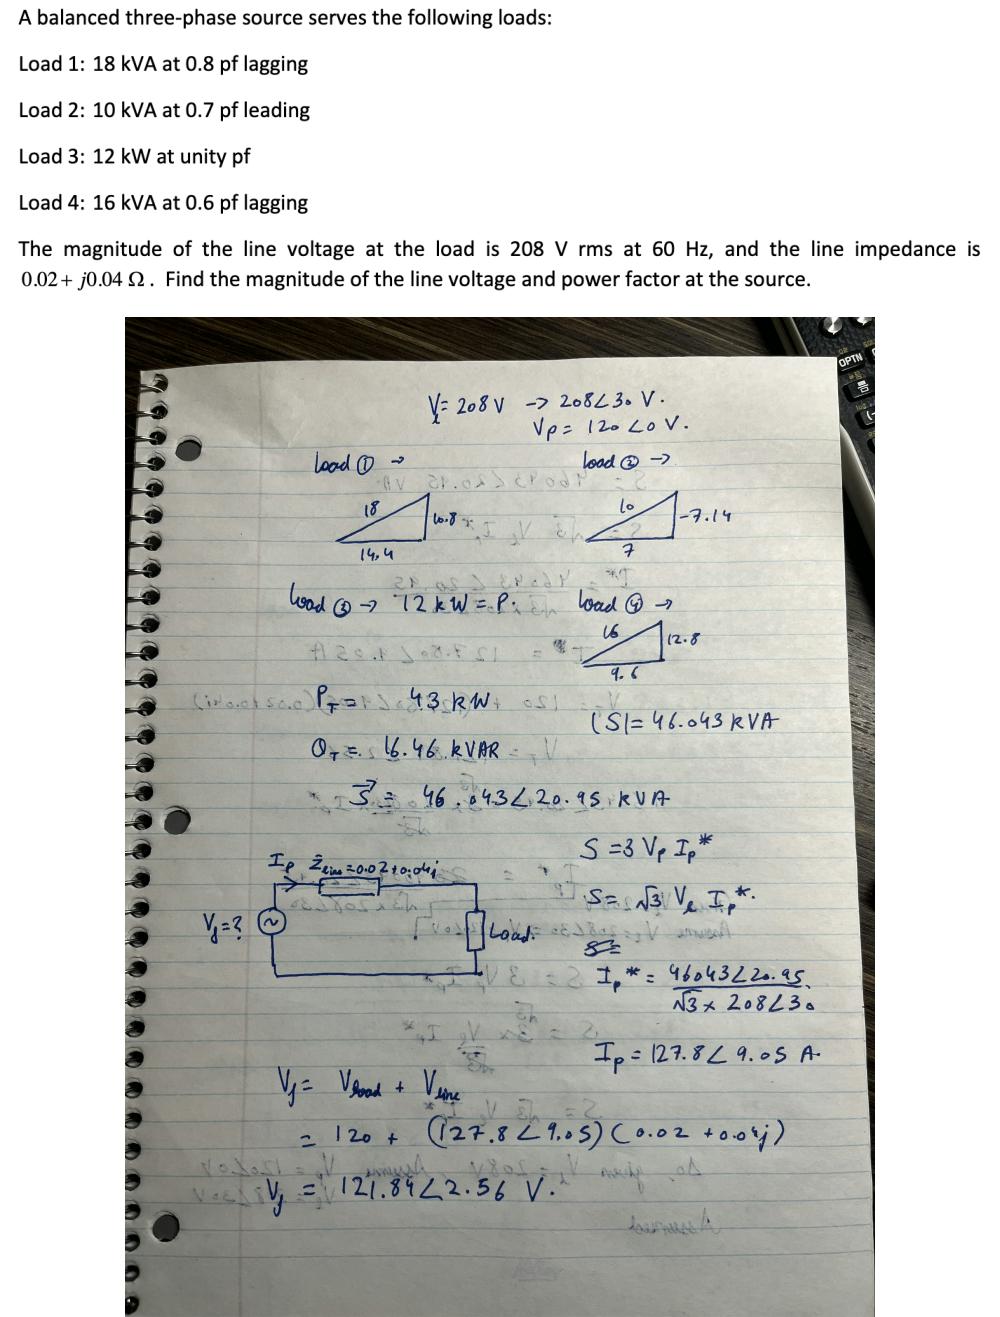 A balanced three-phase source serves the following loads:
Load 1: 18 kVA at 0.8 pf lagging
Load 2: 10 kVA at 0.7 pf leading
Load 3: 12 kW at unity pf
Load 4: 16 kVA at 0.6 pf lagging
The magnitude of the line voltage at the load is 208 V rms at 60 Hz, and the line impedance is
0.02 + j0.04 Ω. Find the magnitude of the line voltage and power factor at the source.
OPTN
V_l = 208 V -> 208∠30 V.
Vp = 120 ∠0 V.
Load ① →
Load ② →
18
10.8
14.4
10
-7.14
7
Load ③ → 12 kW = P.
Load ④ →
16
12.8
9.6
P_T = 43 kW
|S| = 46.043 kVA
Q_T = 16.46 kVAR
S = 46.043∠20.95 kVA
S = 3 Vp Ip*
Ip Z_line = 0.02+0.04j
S = √3 V_l Ip*.
Vs = ?
Load.
Ip* = 46043∠20.95
√3 x 208∠30
Ip = 127.8∠9.05 A.
Vs = Vload + Vline
= 120 + (127.8∠9.05)(0.02 + 0.04j)
Vs = 121.84∠2.56 V.